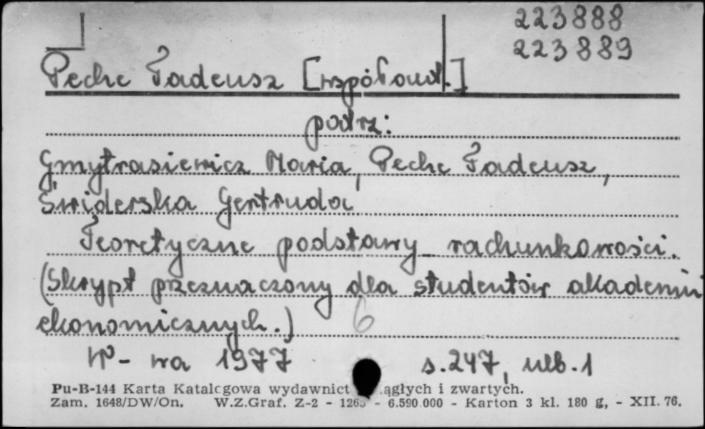 223888
223889
Peche Tadeusz [współaut.]
podrz:
Gmytrasiewicz Maria, Peche Tadeusz,
Świderska Gertruda
Teoretyczne podstawy rachunkowości.
(Skrypt przeznaczony dla studentów akademii
ekonomicznych.) 6
W-wa 1977 s.247, nlb.1
Pu-B-144 Karta Katalogowa wydawnict ągłych i zwartych.
Zam. 1648/DW/On. W.Z.Graf. Z-2 - 1265 - 6.590.000 - Karton 3 kl. 180 g, - XII. 76.